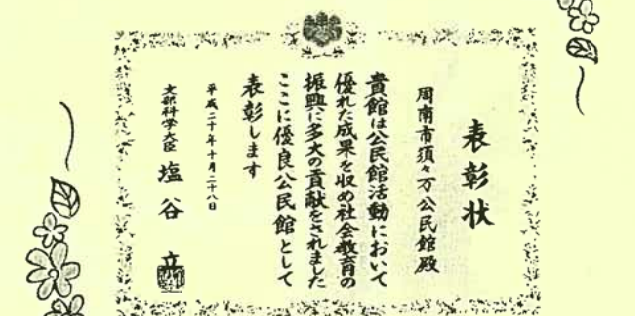 表彰状
周南市須々万公民館殿
貴館は公民館活動において
優れた成果を収め社会教育の
振興に多大の貢献をされました
ここに優良公民館として
表彰します
平成二十年十月二十八日
文部科学大臣 塩谷 立